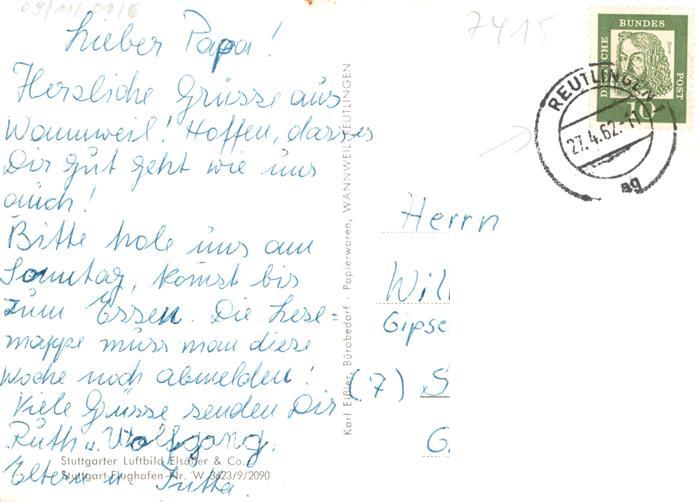 Lieber Papa!
Herzliche Grüsse aus
Wannweil! Hoffen, dass es
Dir gut geht wie uns
auch!
Bitte hole uns am
Sonntag, komst bis
zum Essen. Die Lese=
mappe muss man diese
Woche noch abmelden!
Viele Grüsse senden Dir
Ruth u. Wolfgang.
Eltern u. Jutta.
Stuttgarter Luftbild Elsäßer & Co.
Stuttgart-Flughafen-Nr. W 3623/9/2090
Karl Eißler, Bürobedarf · Papierwaren, WANNWEIL-REUTLINGEN
7415
DEUTSCHE BUNDESPOST
10
REUTLINGEN 1
27.4.62
ag
Herrn
Will
Gipse
(7) S
G